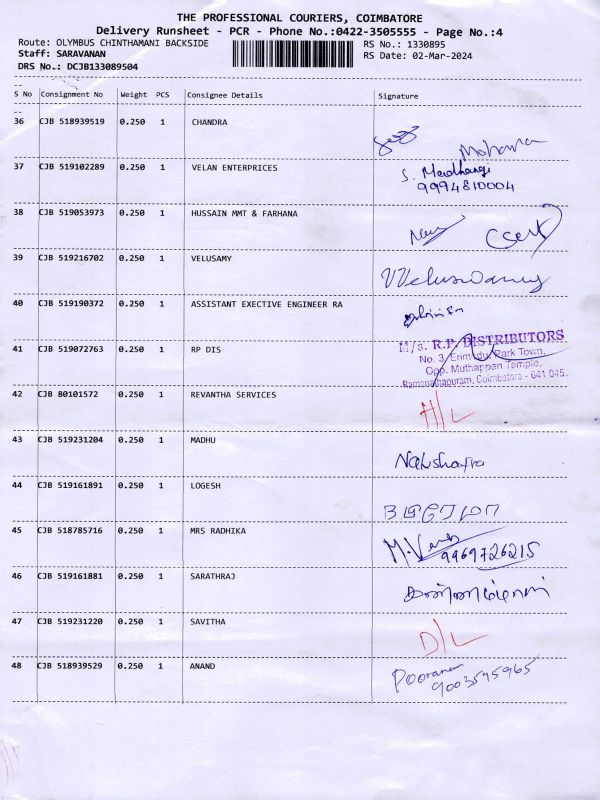 THE PROFESSIONAL COURIERS, COIMBATORE
Delivery Runsheet - PCR - Phone No.:0422-3505555 - Page No.:4
Route: OLYMBUS CHINTHAMANI BACKSIDE RS No.: 1330895
Staff: SARAVANAN RS Date: 02-Mar-2024
DRS No.: DCJB133089504
S No Consignment No Weight PCS Consignee Details Signature
36 CJB 518939519 0.250 1 CHANDRA
Mohana
37 CJB 519102289 0.250 1 VELAN ENTERPRICES S. Madhangi
9994810004
38 CJB 519053973 0.250 1 HUSSAIN MMT & FARHANA
39 CJB 519216702 0.250 1 VELUSAMY
40 CJB 519190372 0.250 1 ASSISTANT EXECTIVE ENGINEER RA
41 CJB 519072763 0.250 1 RP DIS M/s. R.P. DISTRIBUTORS
No. 3, Park Town,
Opp. Muthappan Temple,
Ramanathapuram, Coimbatore - 641 045.
42 CJB 80101572 0.250 1 REVANTHA SERVICES
43 CJB 519231204 0.250 1 MADHU
Nakshatra
44 CJB 519161891 0.250 1 LOGESH
45 CJB 518785716 0.250 1 MRS RADHIKA
9969726215
46 CJB 519161881 0.250 1 SARATHRAJ
47 CJB 519231220 0.250 1 SAVITHA
D/L
48 CJB 518939529 0.250 1 ANAND
9003595965